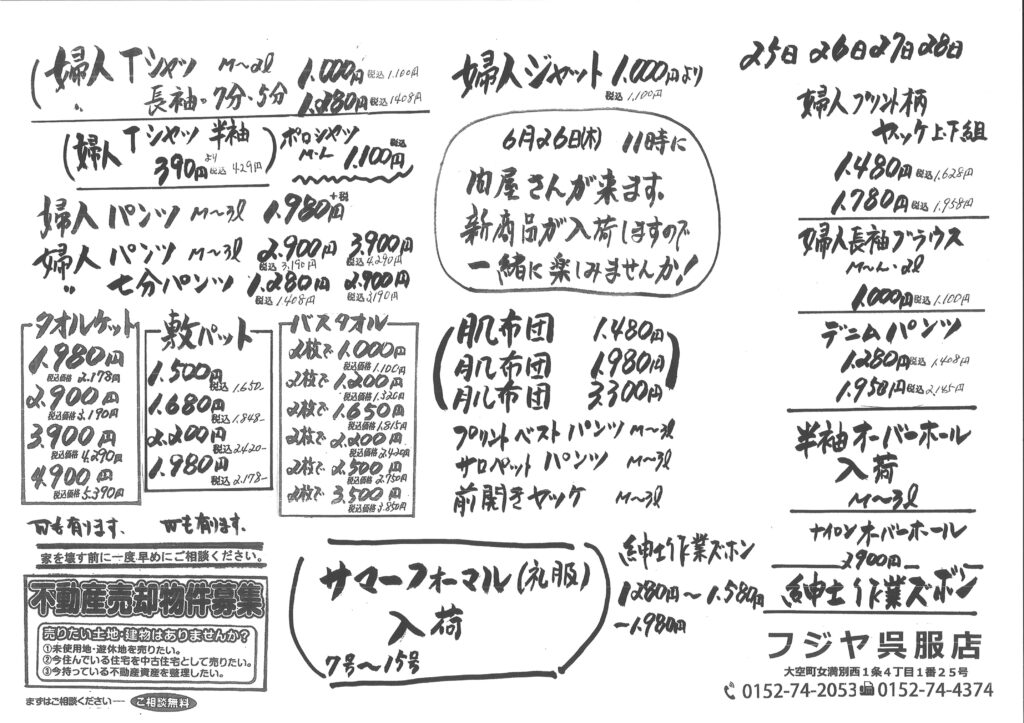 婦人Tシャツ M〜2l 1.000円 税込1.100円
〃 長袖・7分・5分 1.280円 税込1408円
婦人Tシャツ 半袖 390円より 税込429円
ポロシャツ M-L 1.100円 税込
婦人パンツ M〜3l 1.980円+税
婦人パンツ M〜3l 2.900円 税込3.190円 3.900円 税込4.290円
〃 七分パンツ 1.280円 税込1408円 2.900円 税込3190円
タオルケット
1.980円
税込価格2.178円
2.900円
税込価格3.190円
3.900円
税込価格4.290円
4.900円
税込価格5.390円
敷パット
1.500円
税込1.650-
1.680円
税込1.848-
2.200円
税込2.420-
1.980円
税込2.178-
バスタオル
2枚で1.000円
税込価格1.100円
2枚で1.200円
税込価格1.320円
2枚で1.650円
税込価格1.815円
2枚で2.200円
税込価格2.420円
2枚で2.500円
税込価格2.750円
2枚で3.500円
税込価格3.850円
も有ります、 も有ります、
家を壊す前に一度、早めにご相談ください。
不動産売却物件募集
売りたい土地・建物はありませんか？
①未使用地・遊休地を売りたい。
②今住んでいる住宅を中古住宅として売りたい。
③今持っている不動産資産を整理したい。
まずはご相談ください― ご相談無料
婦人ジャット 1.000円より
税込1.100円
6月26日(木) 11時に
問屋さんが来ます。
新商品が入荷しますので
一緒に楽しみませんか！
肌布団 1.480円
肌布団 1.980円
肌布団 3.300円
プリントベストパンツ M〜3l
サロペットパンツ M〜3l
前開きヤッケ M〜3l
サマーフォーマル(礼服)
入荷
7号〜15号
紳士作業ズボン
1280円〜1.580円
―1.980円
25日 26日 27日 28日
婦人プリント柄
ヤッケ上下組
1.480円 税込1.628円
1.780円 税込1.958円
婦人長袖ブラウス
M〜L・2l
1.000円 税込1.100円
デニムパンツ
1.280円 税込1.408円
1.958円 税込2.145円
半袖オーバーホール
入荷
M〜3l
ナイロンオーバーホール
2900円
紳士作業ズボン
フジヤ呉服店
大空町女満別西1条4丁目1番25号
0152-74-2053 0152-74-4374